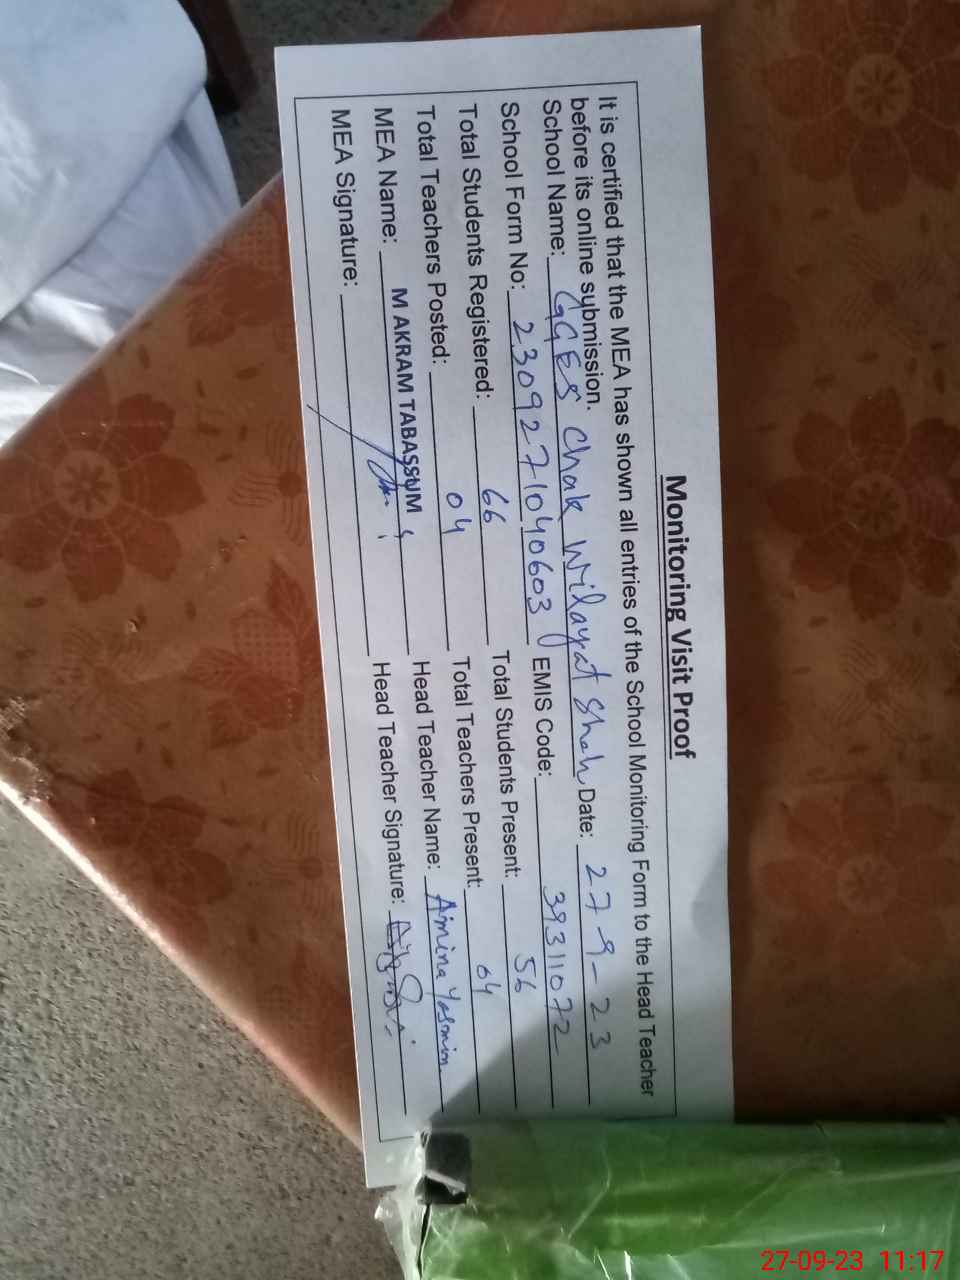 Monitoring Visit Proof
It is certified that the MEA has shown all entries of the School Monitoring Form to the Head Teacher
before its online submission.
School Name: GGES Chak Wilayat Shah Date: 27-9-23
School Form No: 2309271040603 EMIS Code: 39311072
Total Students Registered: 66 Total Students Present: 56
Total Teachers Posted: 04 Total Teachers Present: 04
MEA Name: M AKRAM TABASSUM Head Teacher Name: Amina Yasmin
MEA Signature: Head Teacher Signature:
27-09-23 11:17